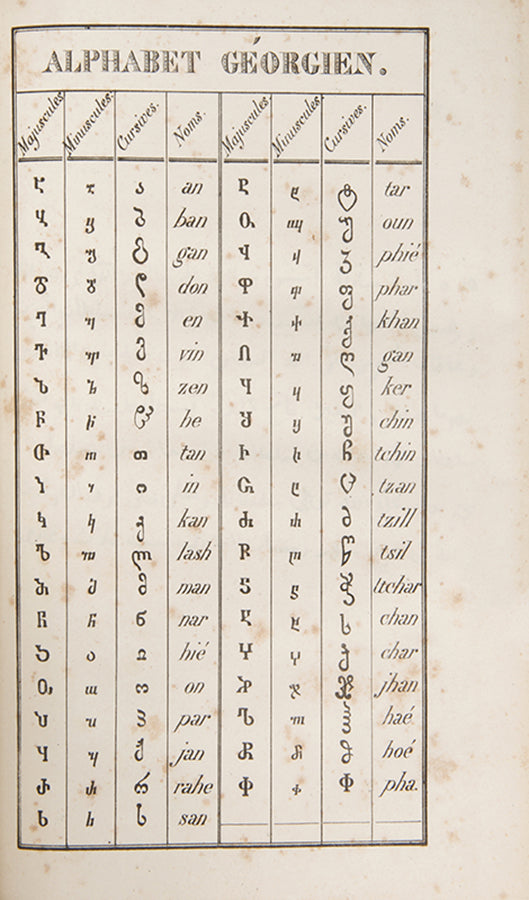 ALPHABET GÉORGIEN.
Majuscules. Minuscules. Cursives. Noms. Majuscules. Minuscules. Cursives. Noms.
Ⴀ ⴀ ა an Ⴒ ⴒ ტ tar
Ⴁ ⴁ ბ ban Ⴓ ⴓ უ oun
Ⴂ ⴂ გ gan Ⴣ ⴣ ჳ phié
Ⴃ ⴃ დ don Ⴔ ⴔ ფ phar
Ⴄ ⴄ ე en Ⴕ ⴕ ქ khan
Ⴅ ⴅ ვ vin Ⴖ ⴖ ღ gan
Ⴆ ⴆ ზ zen Ⴗ ⴗ ყ ker
Ⴡ ⴡ ჱ he Ⴘ ⴘ შ chin
Ⴇ ⴇ თ tan Ⴙ ⴙ ჩ tchin
Ⴈ ⴈ ი in Ⴚ ⴚ ც tzan
Ⴉ ⴉ კ kan Ⴛ ⴛ ძ tzill
Ⴊ ⴊ ლ lash Ⴜ ⴜ წ tsil
Ⴋ ⴋ მ man Ⴝ ⴝ ჭ ltchar
Ⴌ ⴌ ნ nar Ⴞ ⴞ ხ chan
Ⴢ ⴢ ჲ hié Ⴤ ⴤ ჴ char
Ⴍ ⴍ ო on Ⴟ ⴟ ჯ jhan
Ⴎ ⴎ პ par Ⴠ ⴠ ჰ haé
Ⴏ ⴏ ჟ jan Ⴥ ⴥ ჵ hoé
Ⴐ ⴐ რ rahe Φ φ Φ pha.
Ⴑ ⴑ ს san